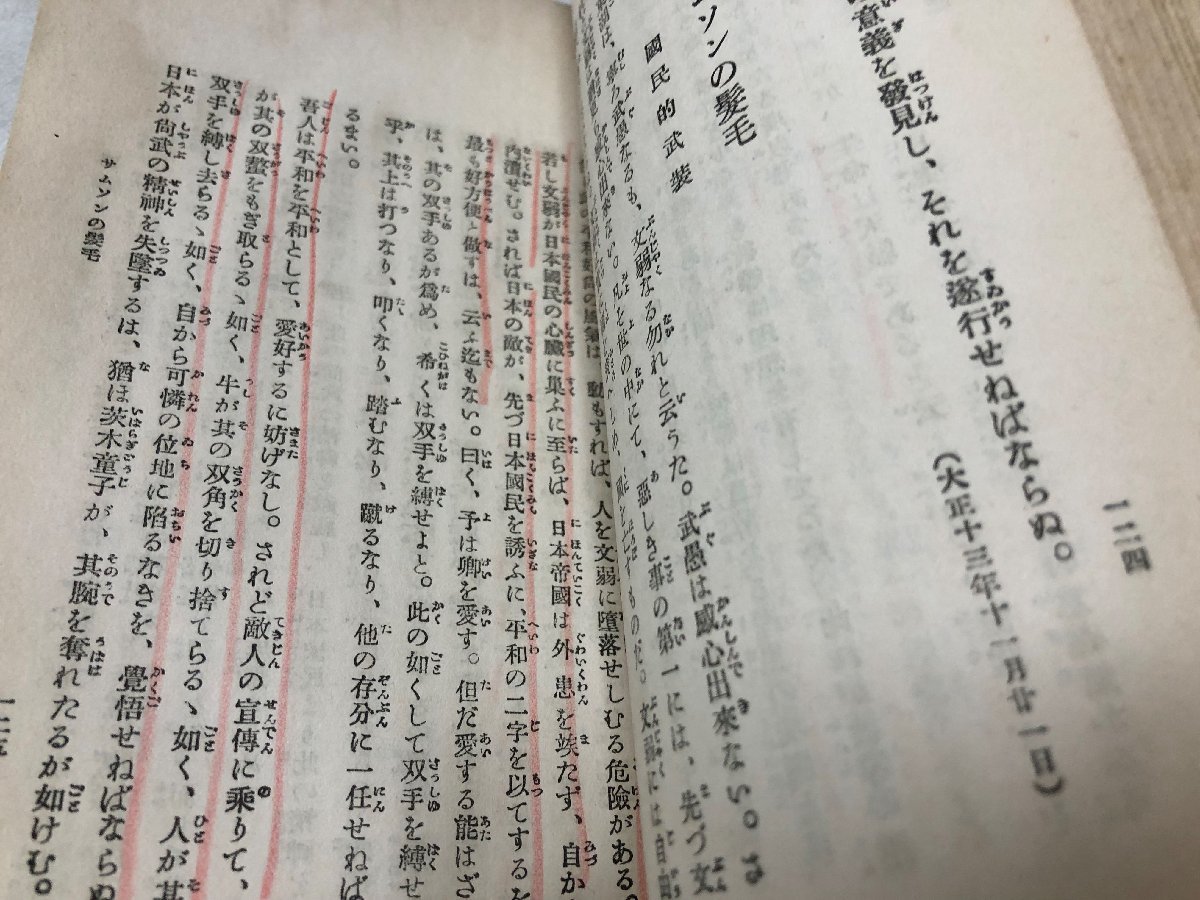 意義を發見し、それを遂行せねばならぬ。
(大正十三年十一月廿一日)
一二四
ムソンの髮毛
國民的武裝
武愚なるも、文弱なる勿れと云うた。武愚は感心出來ない。さ
世の中にて、惡しき事の第一には、先づ文
動もすれば、人を文弱に墮落せしむる危險がある。
若し文弱が日本國民の心臟に巣ふに至らば、日本帝國は外患を竢たず、自か
内潰せむ。されば日本の敵が、先づ日本國民を誘ふに、平和の二字を以てするを
最も好方便と做すは、云ふ迄もない。曰く、予は卿を愛す。但だ愛する能はざ
は、其の双手あるが爲め、希くは双手を縛せよと。此の如くして双手を縛せ
乎、其上は打つなり、叩くなり、踏むなり、蹴るなり、他の存分に一任せねば
るまい。
吾人は平和を平和として、愛好するに妨げなし。されど敵人の宣傳に乘りて、
が其の双螯をもぎ取らるゝ如く、牛が其の双角を切り捨てらるゝ如く、人が其
双手を縛し去らるゝ如く、自から可憐の位地に陷るなきを、覺悟せねばならぬ
日本が尙武の精神を失墜するは、猶ほ茨木童子が、其腕を奪れたるが如けむ。
サムソンの髮毛
一二五